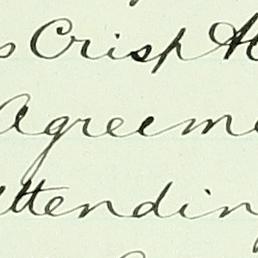 s Crisp A
Agreeme
ttendin